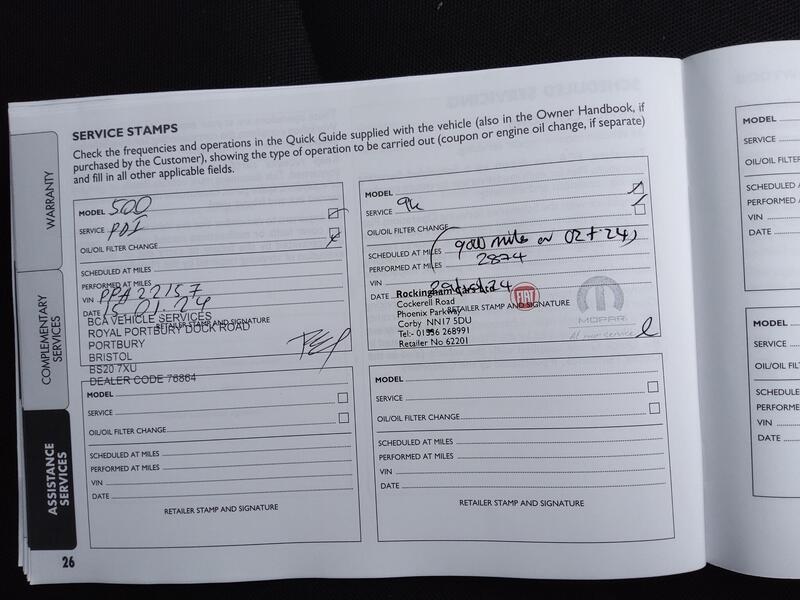 SERVICE STAMPS
Check the frequencies and operations in the Quick Guide supplied with the vehicle (also in the Owner Handbook, if
purchased by the Customer), showing the type of operation to be carried out (coupon or engine oil change, if separate)
and fill in all other applicable fields.
WARRANTY
COMPLEMENTARY
SERVICES
ASSISTANCE
SERVICES
MODEL 500
SERVICE PDI
OIL/OIL FILTER CHANGE
SCHEDULED AT MILES
PERFORMED AT MILES
VIN PPA22157
DATE 15.01.24
BCA VEHICLE SERVICES
RETAILER STAMP AND SIGNATURE
ROYAL PORTBURY DOCK ROAD
PORTBURY
BRISTOL
BS20 7XU
DEALER CODE 76864
MODEL
SERVICE 9k
OIL/OIL FILTER CHANGE
SCHEDULED AT MILES (9000 miles or 02.24)
PERFORMED AT MILES 2874
VIN
DATE
Rockingham Cars Ltd
Cockerell Road
Phoenix Parkway
Corby NN17 5DU
Tel:- 01536 268991
Retailer No 62201
FIAT
RETAILER STAMP AND SIGNATURE
MOPAR
At your service
MODEL
SERVICE
OIL/OIL FILTER CHANGE
SCHEDULED AT MILES
PERFORMED AT MILES
VIN
DATE
RETAILER STAMP AND SIGNATURE
MODEL
SERVICE
OIL/OIL FILTER CHANGE
SCHEDULED AT MILES
PERFORMED AT MILES
VIN
DATE
RETAILER STAMP AND SIGNATURE
26
MODEL
SERVICE
OIL/OIL FILTER
SCHEDULED A
PERFORMED A
VIN
DATE
MODEL
SERVICE
OIL/OIL FILT
SCHEDULED
PERFORME
VIN
DATE